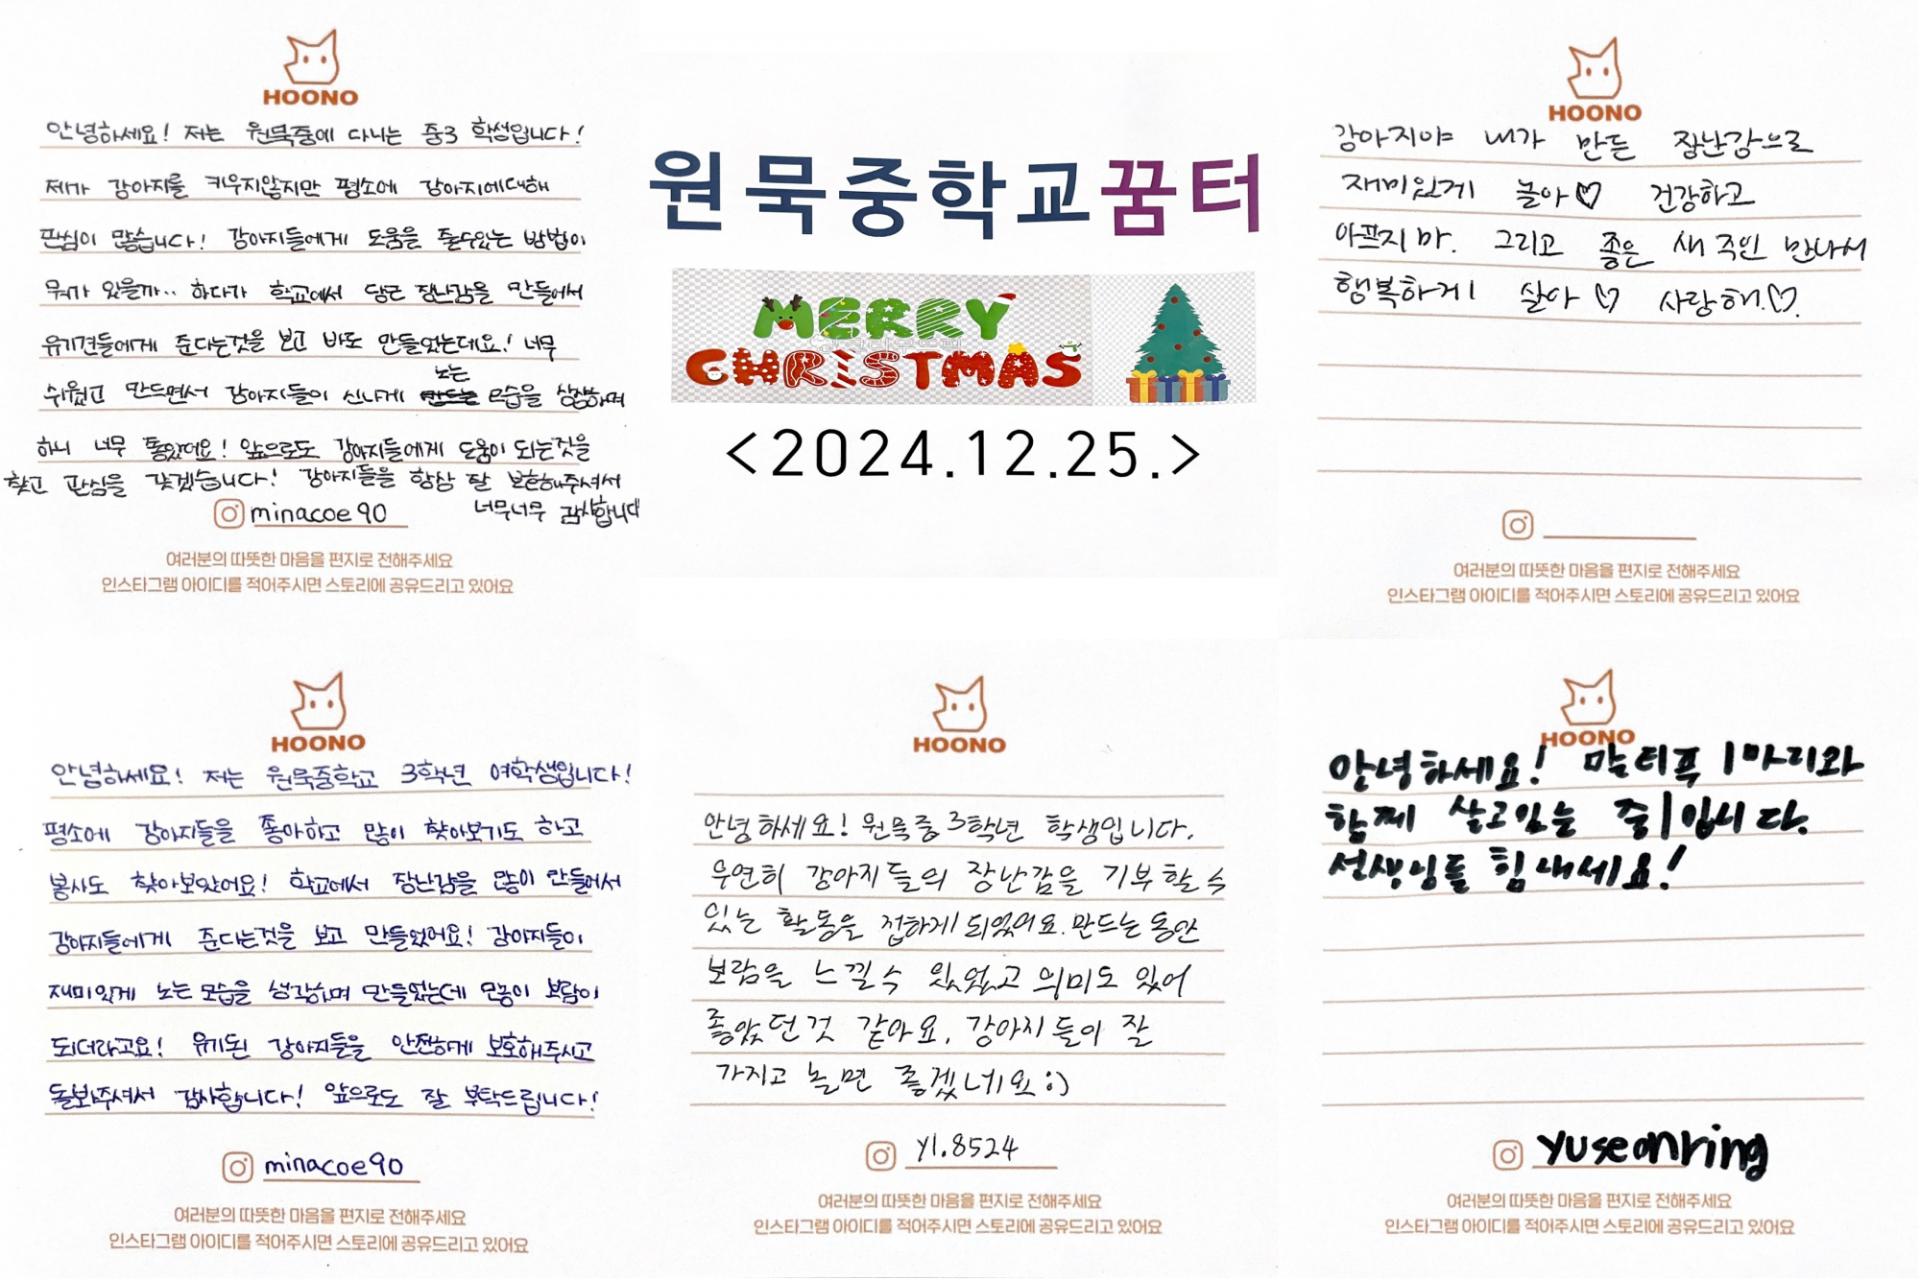 HOONO
안녕하세요! 저는 원묵중에 다니는 중3 학생입니다!
제가 강아지를 키우지않지만 평소에 강아지에대해
관심이 많습니다! 강아지들에게 도움을 줄수있는 방법이
뭐가 있을까.. 하다가 학교에서 당근 장난감을 만들어서
유기견들에게 준다는것을 보고 바로 만들었는데요! 너무
쉬웠고 만드면서 강아지들이 신나게 노는 모습을 상상하며
하니 너무 좋았어요! 앞으로도 강아지들에게 도움이 되는것을
찾고 관심을 갖겠습니다! 강아지들을 항상 잘 보호해주셔서
너무너무 감사합니다
minacoe90
여러분의 따뜻한 마음을 편지로 전해주세요
인스타그램 아이디를 적어주시면 스토리에 공유드리고 있어요
원묵중학교꿈터
MERRY
CHRISTMAS
<2024.12.25.>
HOONO
강아지야 내가 만든 장난감으로
재미있게 놀아♡ 건강하고
아프지마. 그리고 좋은 새주인 만나서
행복하게 살아♡ 사랑해.♡.
여러분의 따뜻한 마음을 편지로 전해주세요
인스타그램 아이디를 적어주시면 스토리에 공유드리고 있어요
HOONO
안녕하세요! 저는 원묵중학교 3학년 여학생입니다!
평소에 강아지들을 좋아하고 많이 찾아보기도 하고
봉사도 찾아보았어요! 학교에서 장난감을 많이 만들어서
강아지들에게 준다는것을 보고 만들었어요! 강아지들이
재미있게 노는모습을 생각하며 만들었는데 모둠이 보람이
되더라고요! 유기된 강아지들을 안전하게 보호해주시고
돌봐주셔서 감사합니다! 앞으로도 잘 부탁드립니다!
minacoe90
여러분의 따뜻한 마음을 편지로 전해주세요
인스타그램 아이디를 적어주시면 스토리에 공유드리고 있어요
HOONO
안녕하세요! 원묵중 3학년 학생입니다.
우연히 강아지들의 장난감을 기부할 수
있는 활동을 접하게 되었어요. 만드는 동안
보람을 느낄 수 있었고 의미도 있어
좋았던것 같아요. 강아지들이 잘
가지고 놀면 좋겠네요:)
yl.8524
여러분의 따뜻한 마음을 편지로 전해주세요
인스타그램 아이디를 적어주시면 스토리에 공유드리고 있어요
HOONO
안녕하세요! 말티푸 1마리와
함께 살고있는 중1입니다.
선생님들 힘내세요!
yuseonring
여러분의 따뜻한 마음을 편지로 전해주세요
인스타그램 아이디를 적어주시면 스토리에 공유드리고 있어요